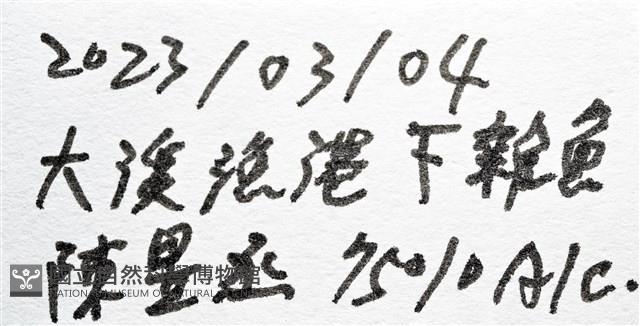 2023/03/04
大溪漁港下雜魚
陳昱丞 75% Alc.
國立自然科學博物館
NATIONAL MUSEUM OF NATURAL SCIENCE